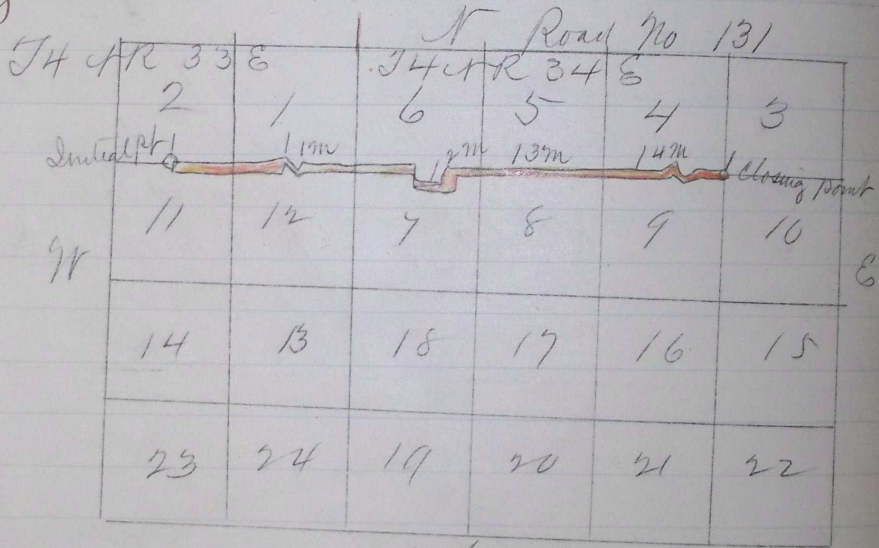 N Road No 131
T4 N R 33 E T4 N R 34 E
2 1 6 5 4 3
Initial Pt 1m 2m 3m 4m Closing point
11 12 7 8 9 10
W E
14 13 18 17 16 15
23 24 19 20 21 22